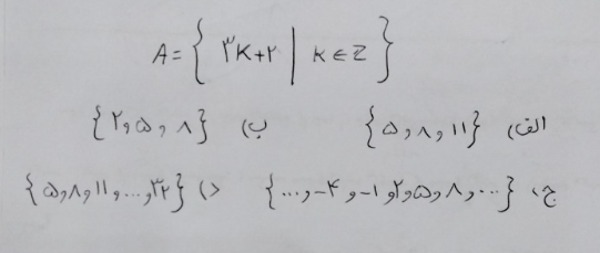 A = { ۳K+۲ | K ∈ Z }
الف) {۵ و ۸ و ۱۱} ب) {۲ و ۵ و ۸}
ج) {... و ۴- و ۱- و ۲ و ۵ و ۸ و ...} د) {۵ و ۸ و ۱۱ و ... و ۳۲}